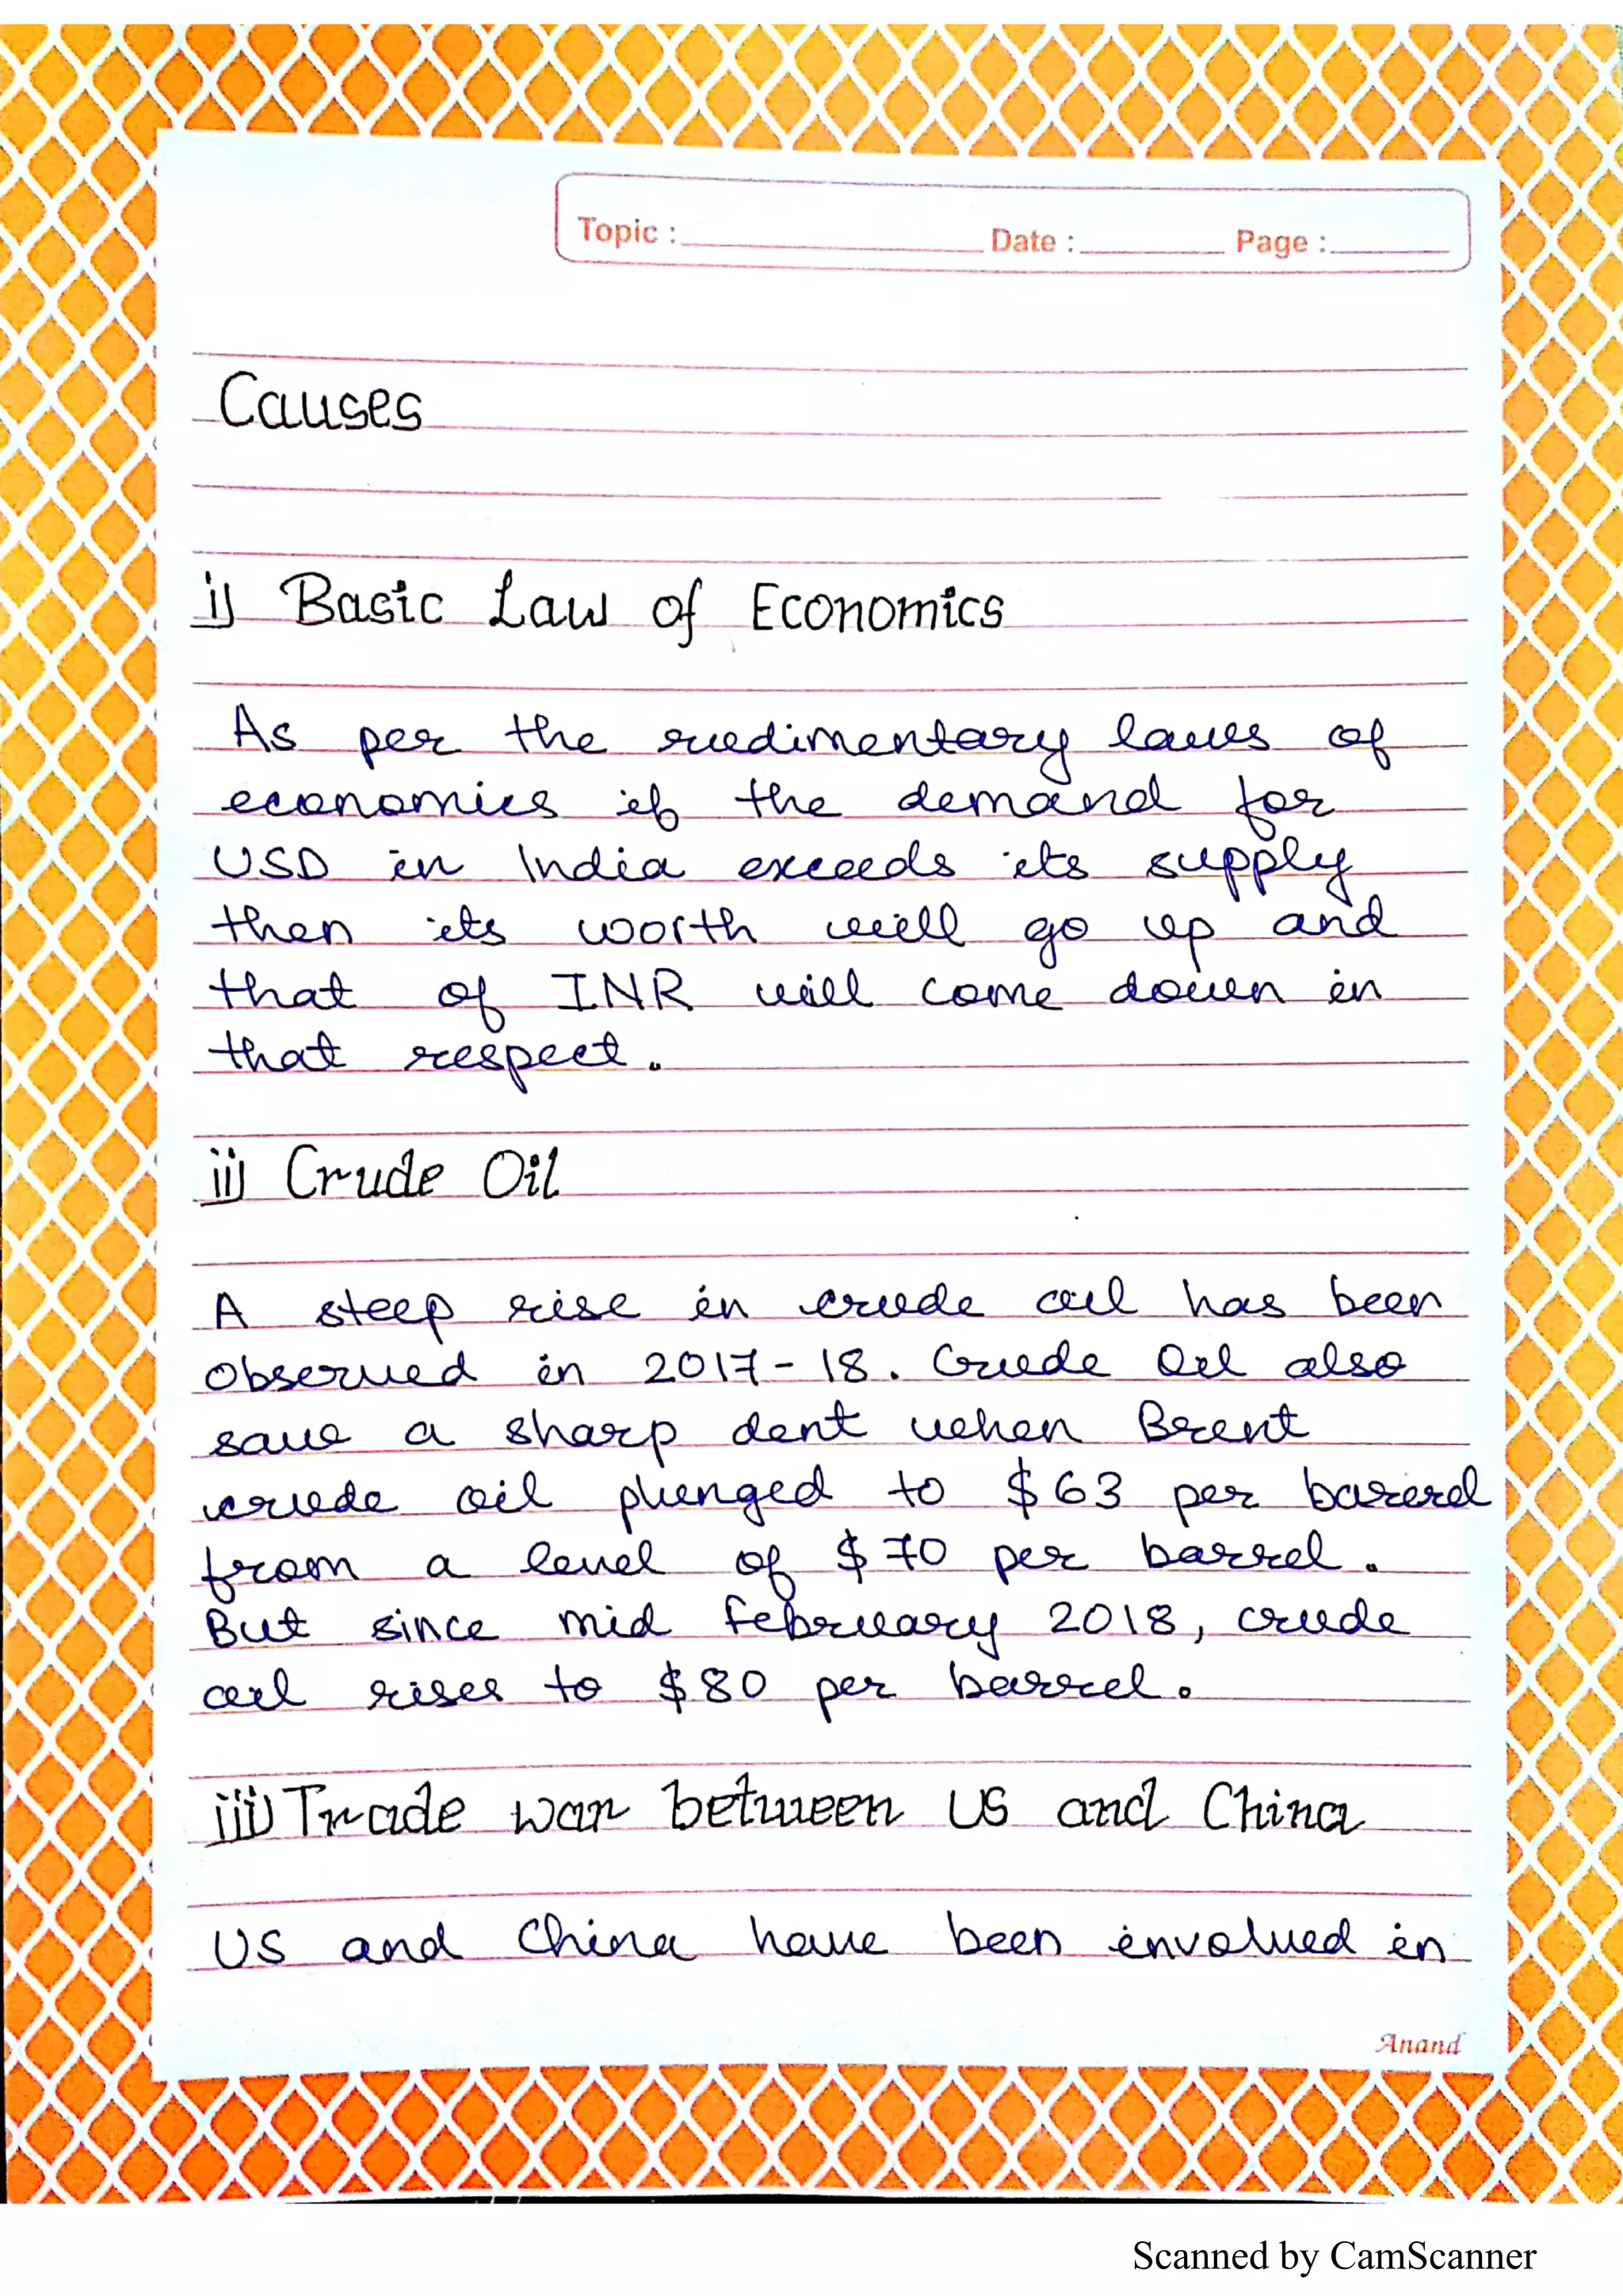 Topic : Date : Page :
Causes
i) Basic Law of Economics
As per the rudimentary laws of
economics if the demand for
USD in India exceeds its supply
then its worth will go up and
that of INR will come down in
that respect.
ii) Crude Oil
A steep rise in crude oil has been
observed in 2017-18. Crude Oil also
saw a sharp dent when Brent
crude oil plunged to $63 per barrel
from a level of $70 per barrel.
But since mid february 2018, crude
oil rises to $80 per barrel.
iii) Trade war between US and China
US and China have been involved in
Anand
Scanned by CamScanner